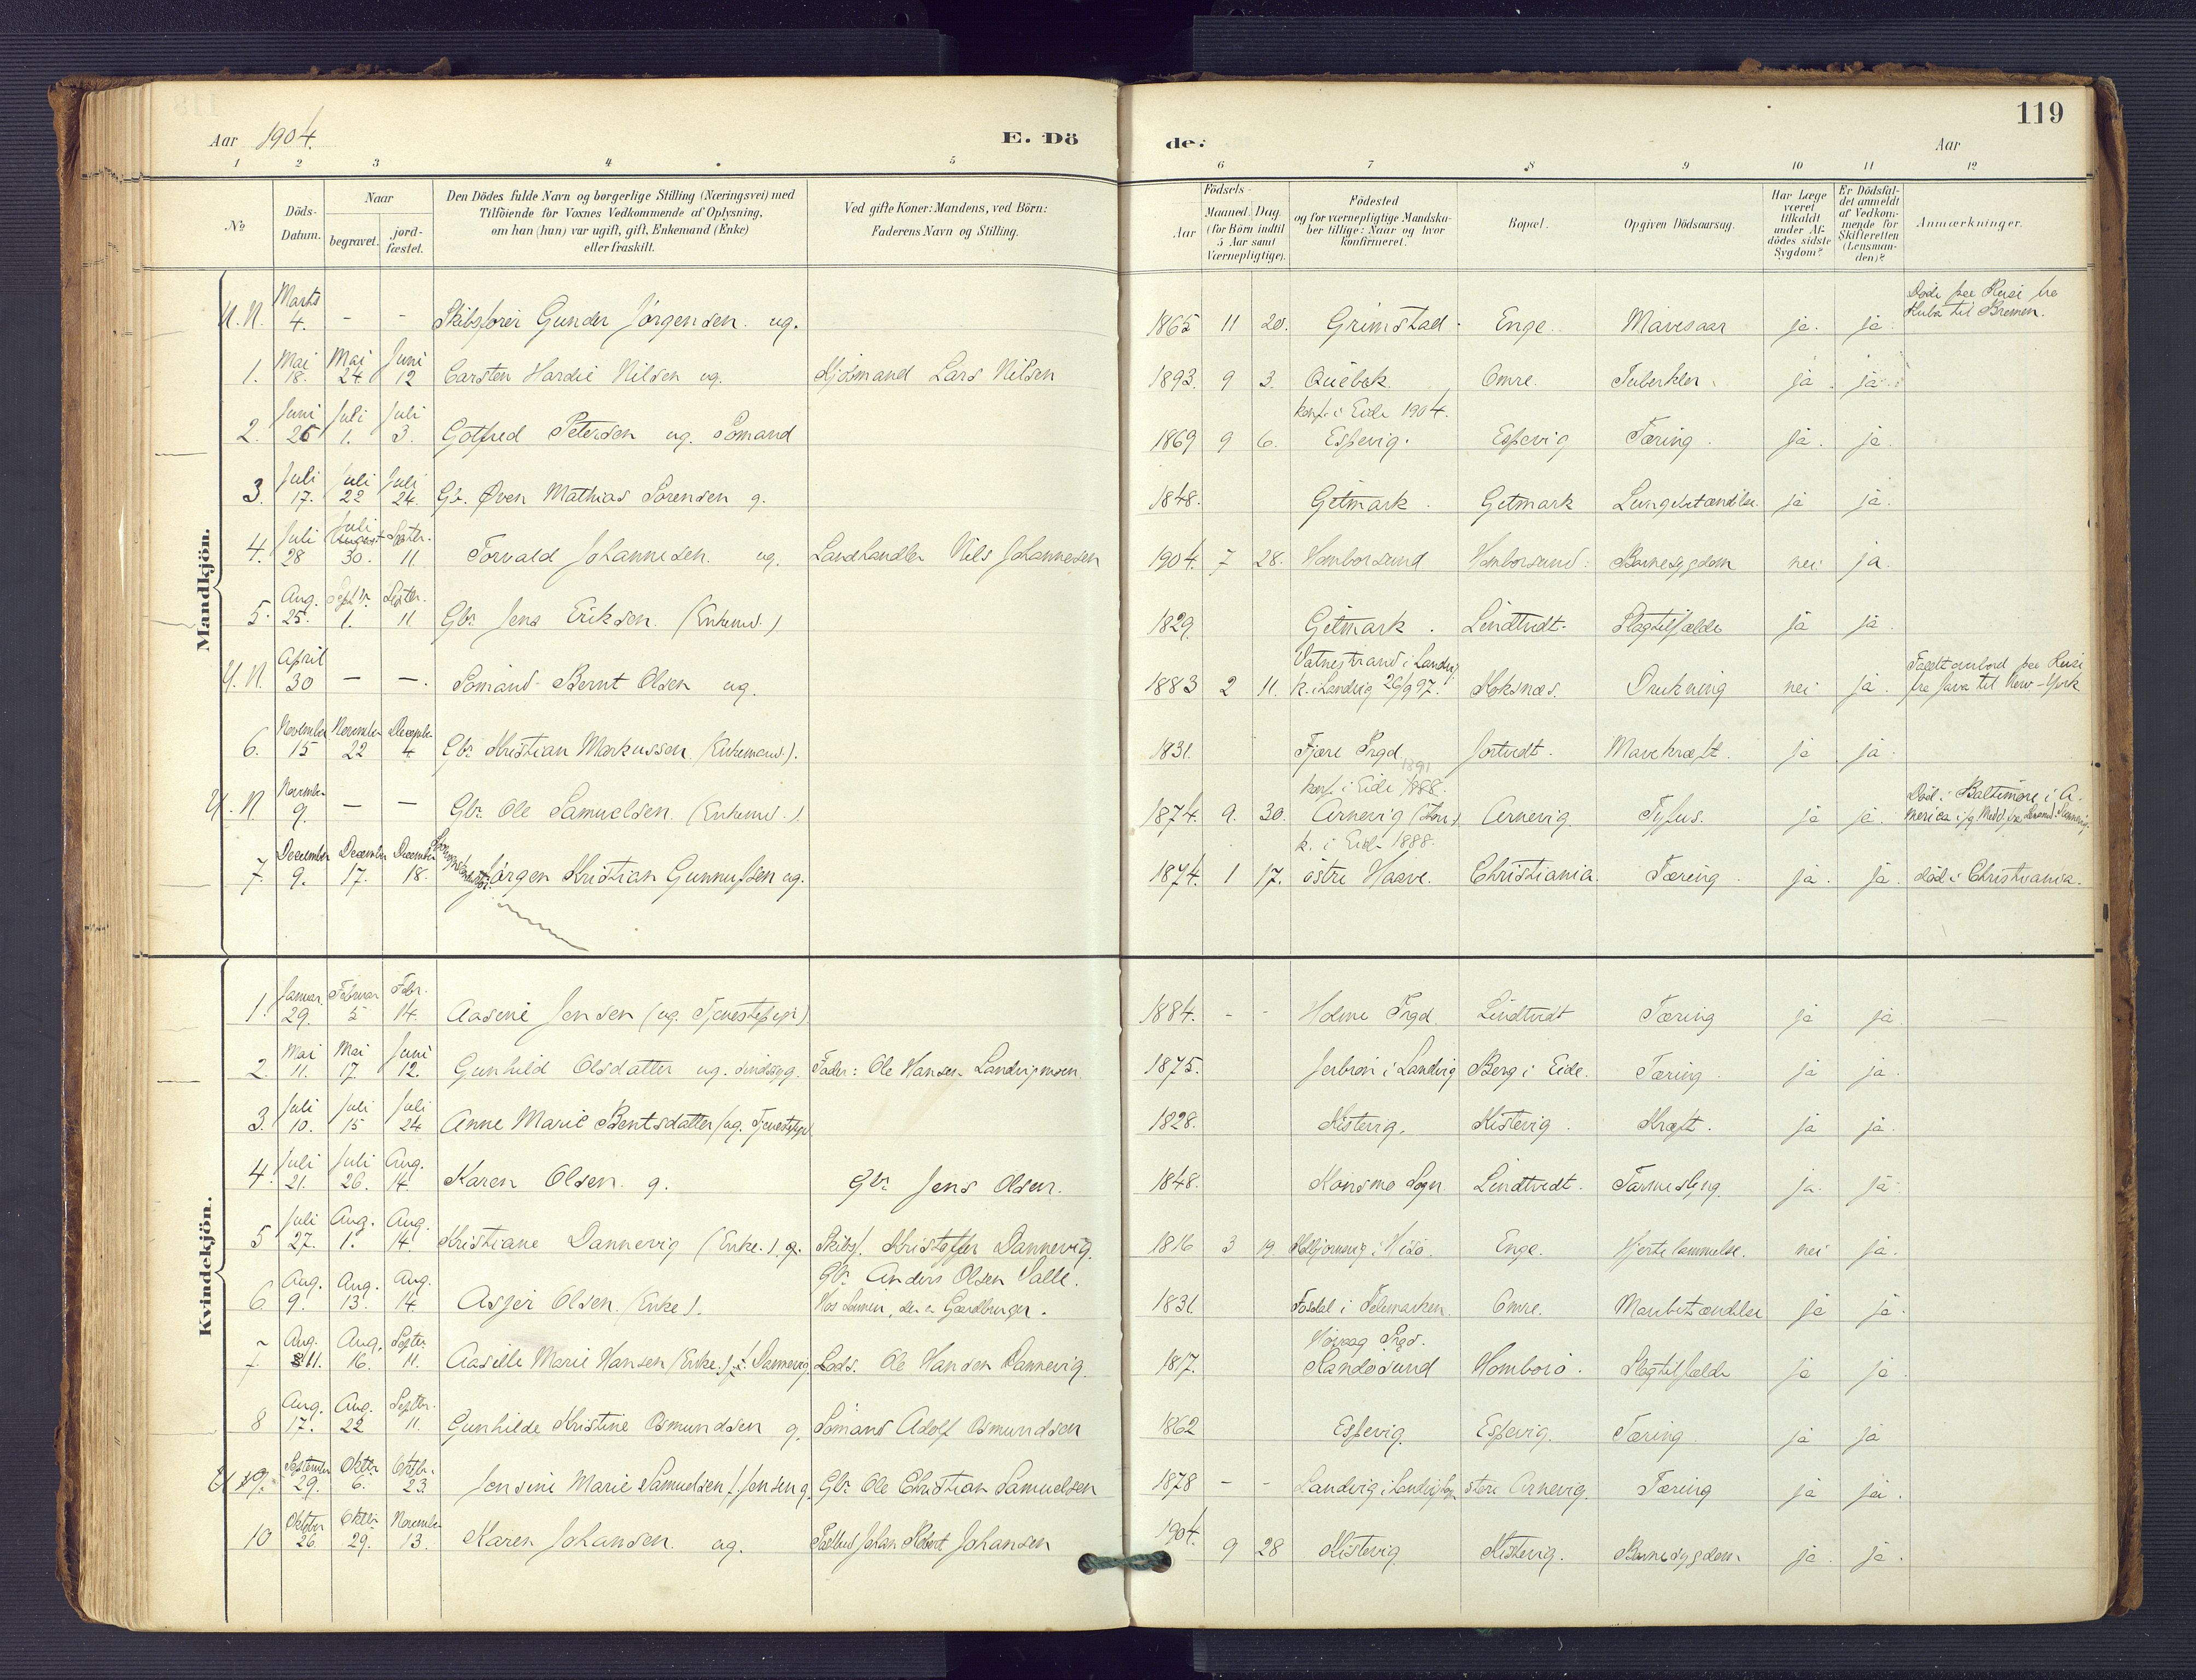 119
Aar 1904.
E. Dö
de:
Aar
1 2 3 4 5 6 7 8 9 10 11 12
No
Döds-Datum.
Naar
begravet.
jord-fæstet.
Den Dödes fulde Navn og borgerlige Stilling (Næringsvei) med
Tilföiende for Voxnes Vedkommende af Oplysning,
om han (hun) var ugift, gift, Enkemand (Enke)
eller fraskilt.
Ved gifte Koner: Mandens, ved Börn:
Faderens Navn og Stilling.
Födsels-
Aar
Maaned. Dag
(for Börn indtil
5 Aar samt
Værnepligtige).
Födested
og for værnepligtige Mandska-
ber tillige: Naar og hvor
konfirmeret.
Bopæl.
Opgiven Dödsaarsag.
Har Læge
været
tilkaldt
under Af-
dödes sidste
Sygdom?
Er Dödsfal-
det anmeldt
af Vedkom-
mende for
Skifteretten
(Lensman-
den)?
Anmærkninger.
Mandkjön.
U.N. Marts 4. - - Skibsförer Gunder Jörgensen. ug. 1865 11 20. Grimstad. Enge. Mavesaar ja. ja. Döde paa Reise fra Kuba til Bremen.
1. Mai 18. Mai 24. Juni 12 Carsten Hardie Nilsen ug. Sjömand Lars Nilsen 1893. 9 3. Quebek. Omre. Tuberkler. ja. ja.
2. Juni 26 Juli 1. Juli 3. Gotfred Petersen ug. Sömand 1869 9 6. konf. i Eide 1904. Espevig. Espevig Tæring. ja. ja.
3. Juli 17. Juli 22 Juli 24. Gbr. Öven Mathias Sörensen g. 1848. Geitmark. Geitmark Lungebetændelse. ja ja.
4. Juli 28 Juli 30. Septbr. 11. Torvald Johannesen. ug. Landhandler Nils Johannesen 1904. 7 28. Homborsund Homborsund. Barnesygdom nei ja.
5. Aug. 25. Septbr. 1. Septbr. 11 Gbr. Jens Eriksen. (Enkemd.) 1829. Geitmark. Lindtvedt. Slagtilfælde ja ja.
U.N. April 30 — —. Sömand Bernt Olsen ug. 1883 2 11. Vatnestrand i Landvig k. i Landvig 26/9 97. Roksnæs. Drukning nei ja. Faldt overbord paa Reise fra Java til New-York
6. November 15 November 22 December 4 Gbr. Kristian Markussen. (Enkemand). 1831. Fjære Prgd. Jortvedt. Mavekræft. ja ja.
U.N November 9. — — Gbr. Ole Samuelsen. (Enkemd.). 1874. 9. 30. konf. i Eide 1888. Arnevig Arnevig. Tyfus. ja ja. Död i Baltimore i America
7. December 9. December 17. December 18. Jörgen Kristian Gunnufsen ug. 1874. 1 17. k. i Eide 1888. östre Haave. Christiania. Tæring. ja. ja. död i Christiania.
Kvindekjön.
1. Januar. 29. Februar 5 Febr. 14. Aasine Jensen (ug. Tjenestepige) 1884. - - Holme Prgd. Lindtvedt Tæring ja ja.
2. Mai 11. Mai 17. Juni 12. Gunhild Olsdatter ug. sindssyg. Fader: Ole Hansen 1875. i Landvig Berg i Eide. Tæring. ja ja.
3. Juli 10. Juli 15 Juli 24 Anne Marie Bentsdatter (ug. 1828. Kistevig. Kistevig. Kræft. ja ja.
4. Juli 21. Juli 26. Aug. 14. Karen Olsen. g. Gbr. Jens Olsen. 1848. Konsmo Sogn. Lindtvedt. Tarmeslyng ja. ja.
5 Juli 27. Aug. 1. Aug. 14. Kristiane Dannevig (Enke.) Skibsf. Kristoffer Dannevig. 1816 3 19. i Hisö. Enge. Hjertelammelse. nei ja.
6 Aug. 9. Aug. 13. Aug. 14 Asgjer Olsen. (Enke). Gbr. Anders Olsen Salte. Hos Sönnen, der er Gaardbruger. 1831. i Telemarken. Omre. Mavebetændelse ja ja.
7 Aug. 11. Aug. 16. Septbr. 11. Aasille Marie Hansen (Enke.) Dannevig. Lods. Ole Hansen Dannevig. 1817. Höivaag Prgd. Randösund Homborö. Slagtilfælde ja ja.
8 Aug. 17. Aug. 22 Septbr. 11. Gunhilde Kristine Osmundsen g. Sömand Adolf Osmundsen 1862 Espevig. Espevig. Tæring. ja ja
9. September 29. Oktbr. 6. Oktbr. 23. Jensine Marie Samuelsen f. Jensen g. Gbr. Ole Christian Samuelsen 1878 - - Landvig i Landvig Sogn store Arnevig. Tæring ja ja.
10 Oktober 26. Oktbr. 29. November 13. Karen Johansen. ug. Johan Robert Johansen 1904. 9 28 Kistevig Kistevig. Barnesygdom ja. ja.